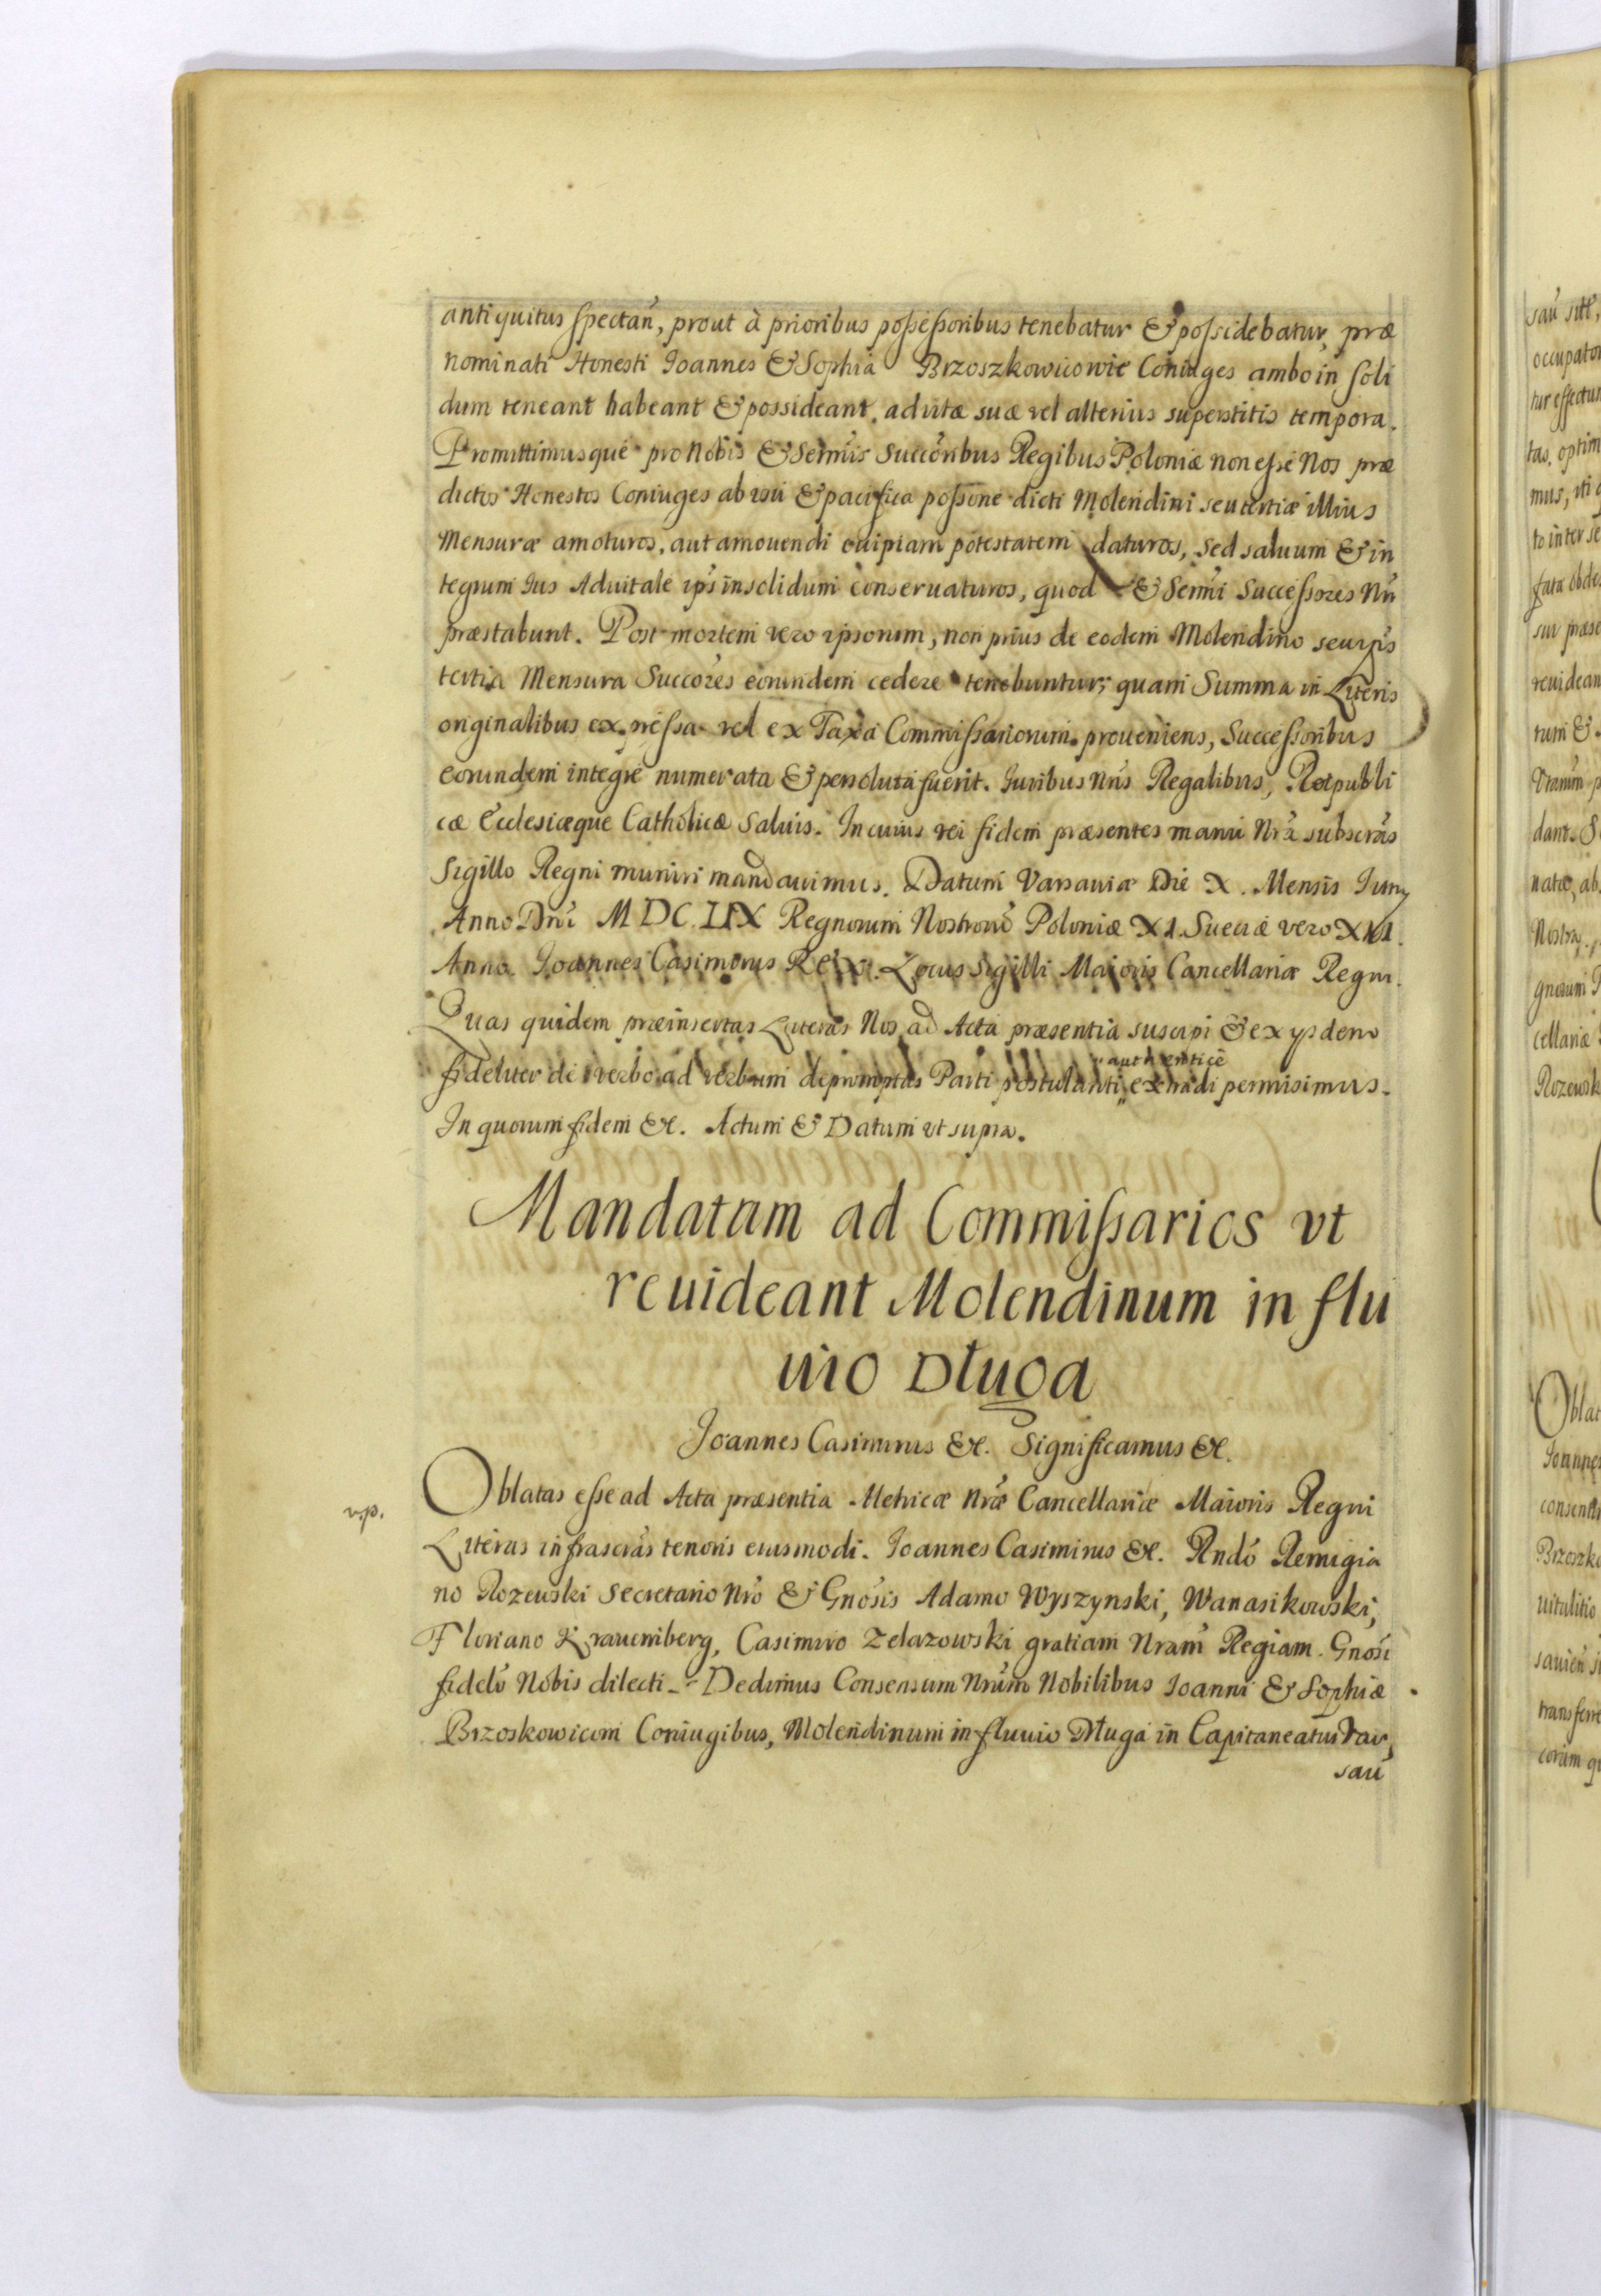 antiquitus spectañ, prout à prioribus possessoribus tenebatur & possidebatur, præ
nominati Honesti Joannes & Sophia Brzoszkowicowie Coniuges ambo in soli
dum teneant habeant & possideant, ad vitæ suæ vel alterius superstitis tempora.
Promittimusque pro Nobis & Sermis Succoribus Regibus Poloniæ non esse Nos præ
dictos Honestos Coniuges ab usu & pacifica possone dicti Molendini seu tertiæ illius
Mensuræ amoturos, aut amouendi cuipiam potestatem daturos, sed saluum & in
tegrum Jus Aduitale ips insolidum conseruaturos, quod & Sermi Successores Nri
præstabunt. Post mortem vero ipsorum, non prius de eodem Molendino seu ips
tertia Mensura Succores eorundem cedere tenebuntur, quam Summa in Literis
originalibus expressa vel ex Taxa Commissariorum proueniens, Successoribus
eorundem integre numerata & persoluta fuerit. Juribus Nris Regalibus, Reipubli
cæ Ecclesiæque Catholicæ saluis. In cuius rei fidem præsentes manu Nra subscras
Sigillo Regni muniri mandauimus. Datum Varsauiæ Die X. Mensis Juny
Anno Dni MDCLIX Regnorum Nostroru Poloniæ XI. Sueciæ vero XII.
Anno. Joannes Casimirus Rex. Locus Sigilli Maioris Cancellariæ Regni.
Quas quidem præinsertas Literas Nos ad Acta præsentia suscipi & ex ysdem
authentice
fideliter de verbo ad verbum depromptas Parti postulanti extradi permisimus.
In quorum fidem &c. Actum & Datum ut supra.
Mandatum ad Commissarios vt
reuideant Molendinum in flu
uio Długa
Joannes Casimirus &c. Significamus &c.
v.p.
Oblatas esse ad Acta præsentia Metricæ Nræ Cancellariæ Maioris Regni
Literas infrascras tenoris eiusmodi. Joannes Casimirus &c. Rndo Remigia
no Rozewski Secretario Nro & Gnosis Adamo Wyszynski, Wanasikowski,
Floriano Krauemberg, Casimiro Zelazowski gratiam Nram Regiam. Gnosi
fidelr Nobis dilecti. Dedimus Consensum Nrum Nobilibus Joanni & Sophiæ
Brzoskowicom Coniugibus, Molendinum in fluuio Długa in Capitaneatu Var
sau